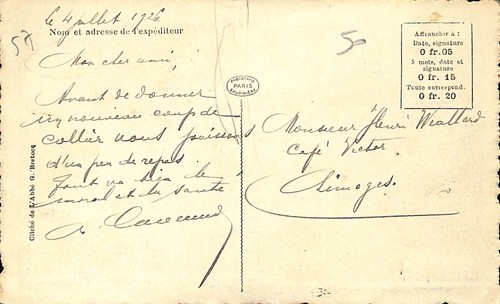 le 4 juillet 1926
Nom et adresse de l'expéditeur
57
50
Mon cher ami,
Avant de donner
un nouveau coup de
collier nous jouissons
d'un peu de repos.
Tout va bien le
moral et la santé
Affranchir à :
Date, signature
0 fr. 05
5 mots, date et
signature
0 fr. 15
Toute correspond.
0 fr. 20
PARIS
Monsieur Henri Viallard
Café Victor
Limoges.
Cliché de L'Abbé G. Bretocq